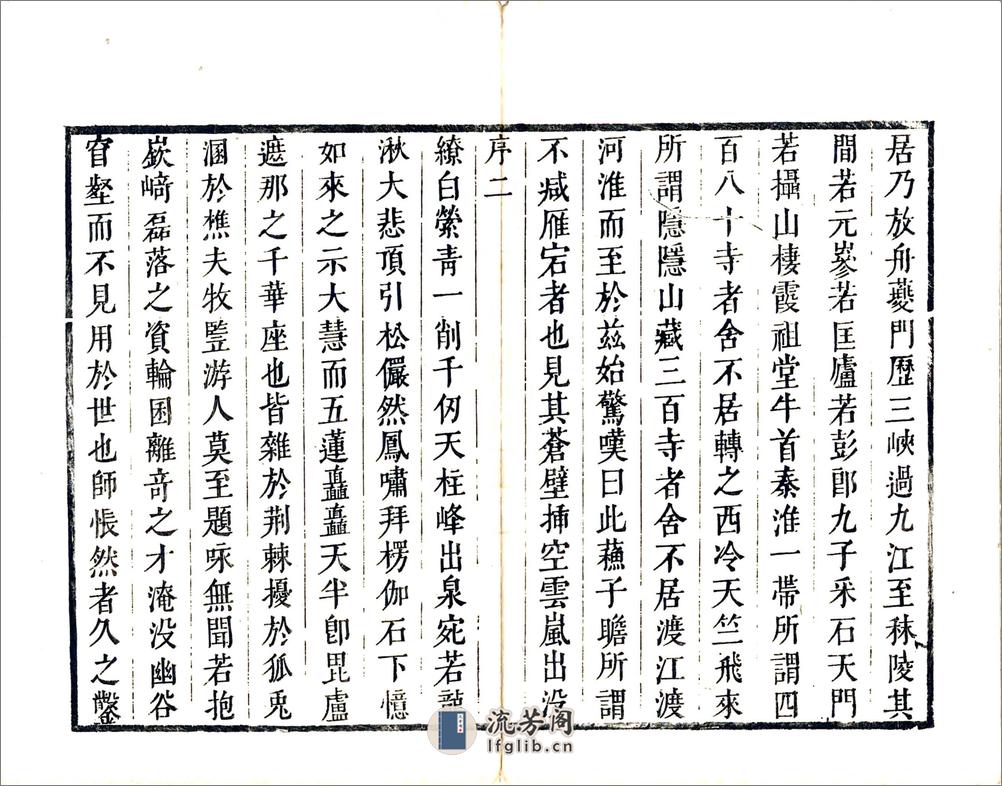 居乃放舟夔門歷三峽過九江至秣陵其
間若元嵾若匡廬若彭郎九子采石天門
若攝山棲霞祖堂牛首秦淮一帶所謂四
百八十寺者舍不居轉之西冷天竺飛來
所謂隱隱山藏三百寺者舍不居渡江渡
河淮而至於茲始驚嘆曰此蘓子瞻所謂
不減雁宕者也見其蒼壁揷空雲嵐出没
序二
繚白縈靑一削千仞天柱峰出泉宛若
湫大悲頂引松儼然鳳嘯拜楞伽石下憶
如來之示大慧而五蓮矗矗天半卽毘盧
遮那之千華座也皆雜於荆棘擾於狐兎
溷於樵夫牧豎游人莫至題咏無聞若抱
嶔﨑磊落之資輪囷離竒之才淹没幽谷
窅壑而不見用於世也師悵然者久之鑿
流芳阁
lfglib.cn